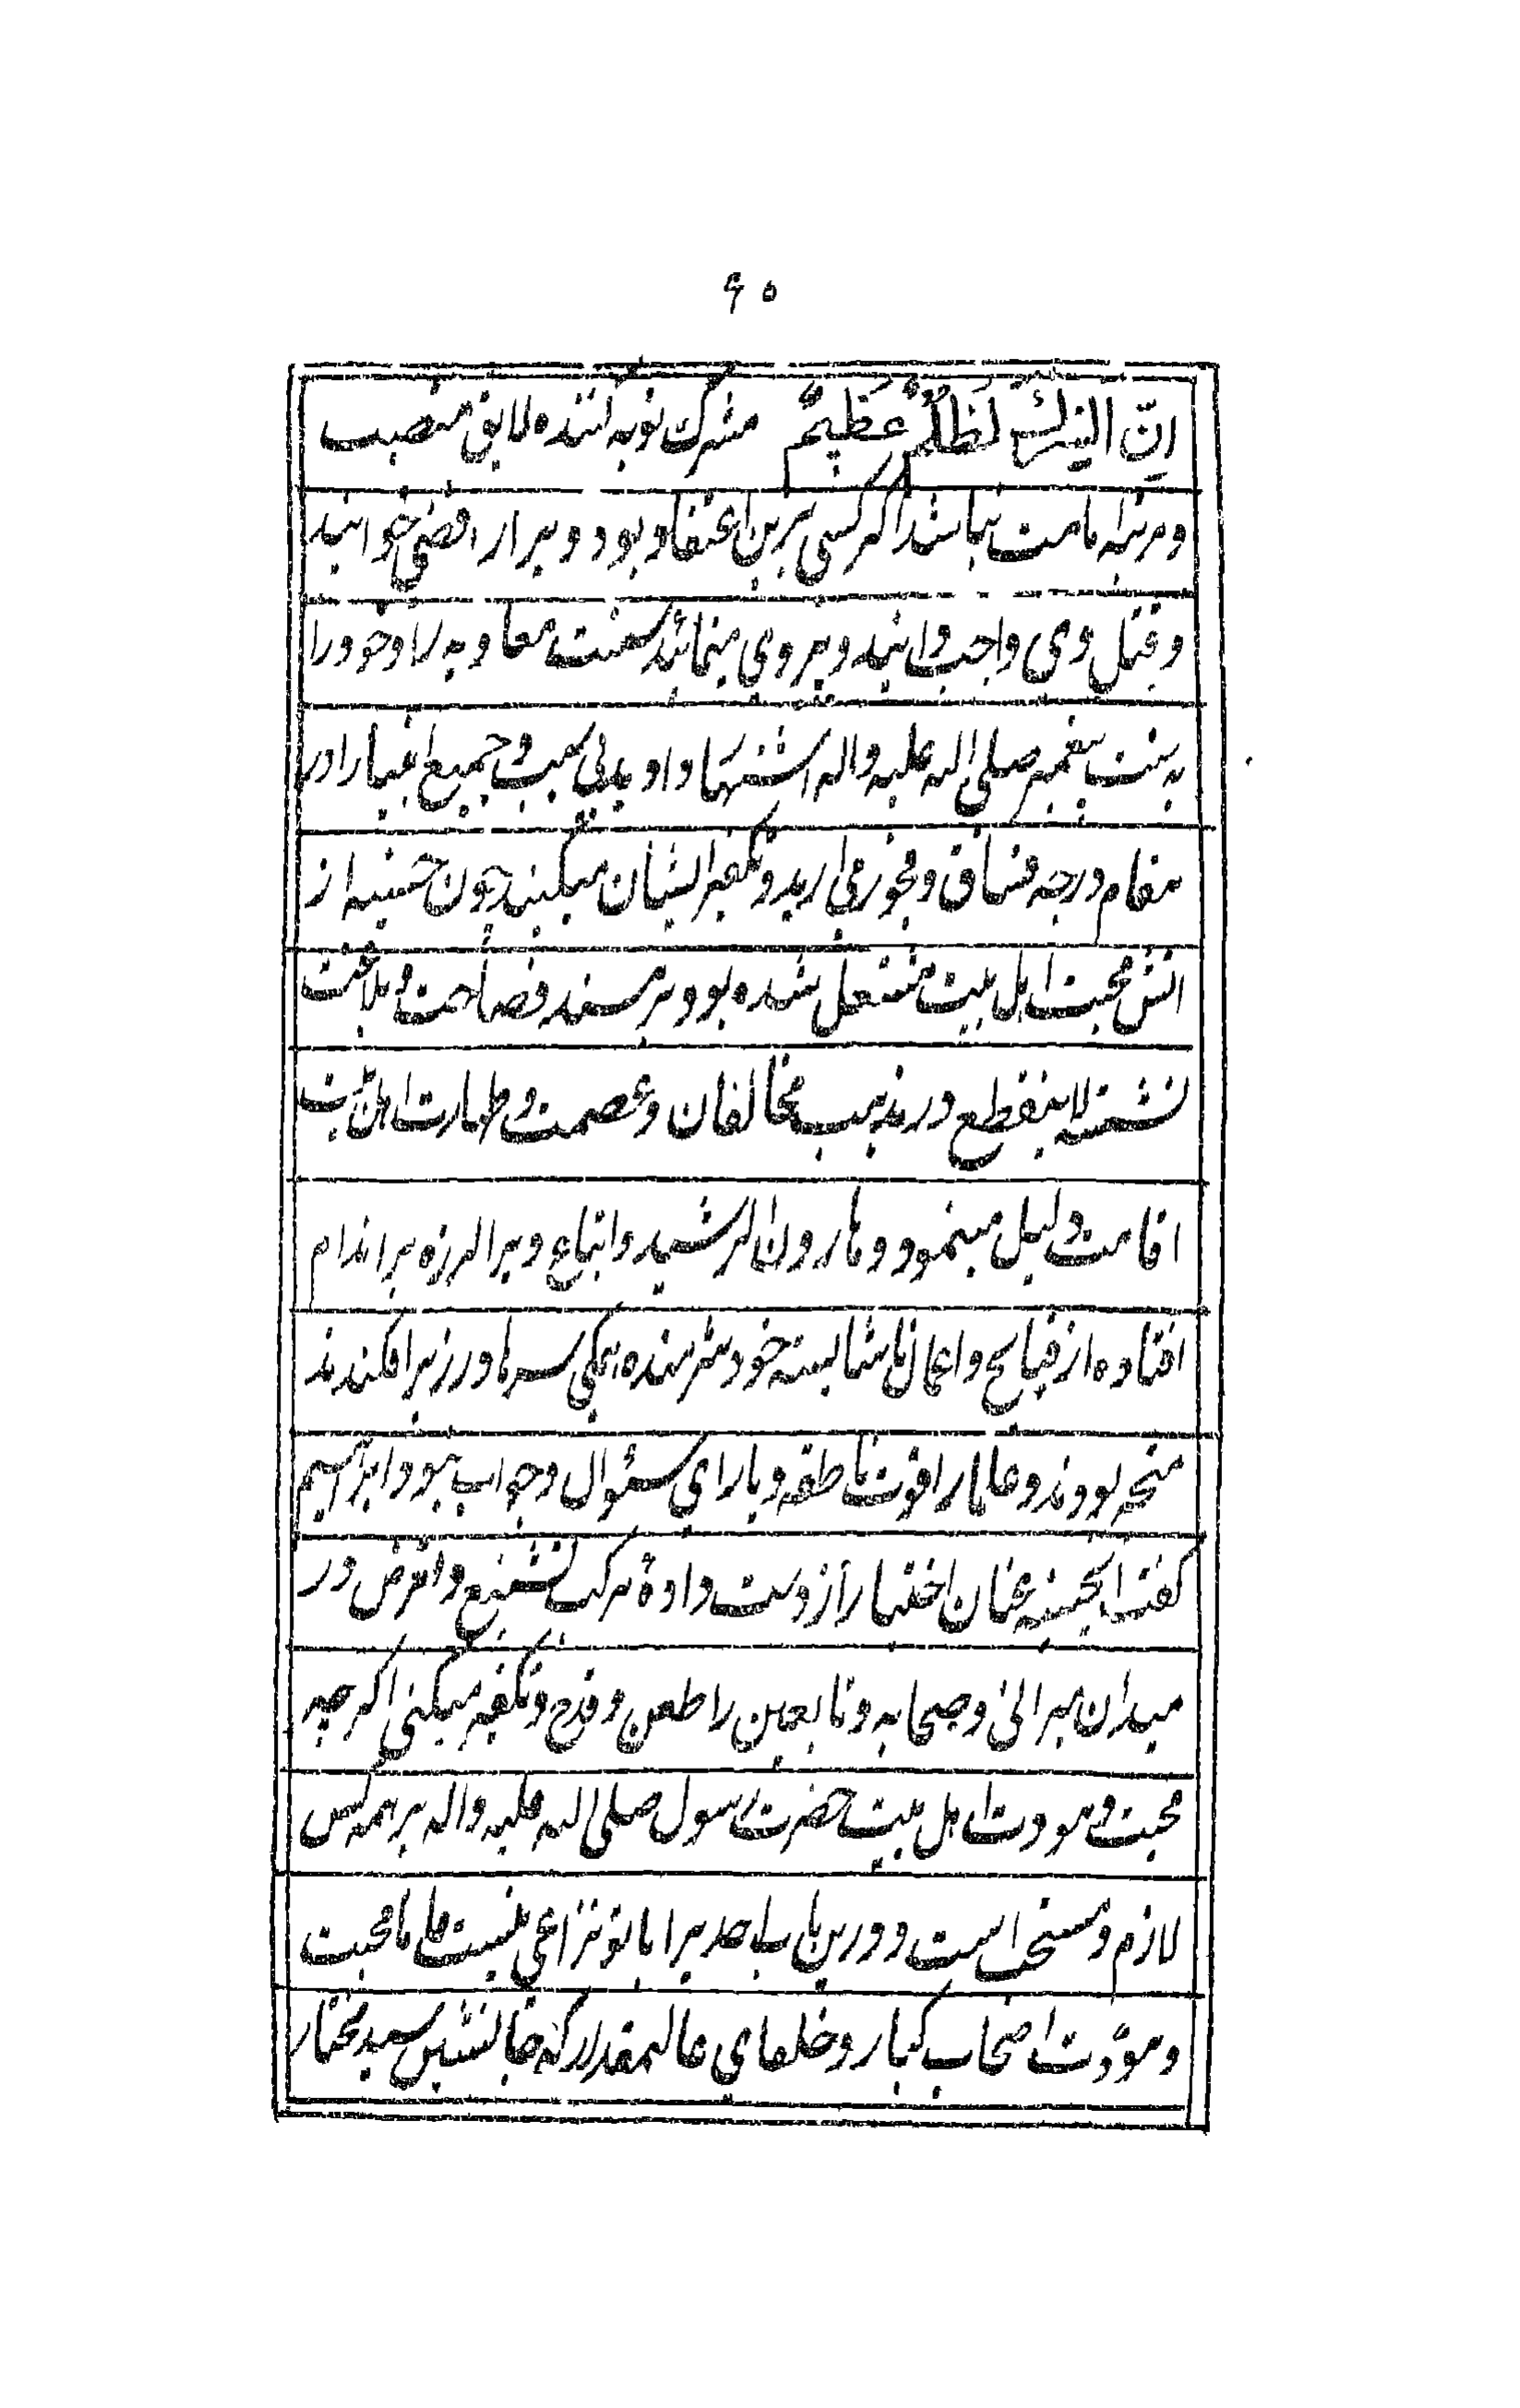 ۹۰
اِنَّ الشِّركَ لَظُلمٌ عَظِیمٌ مشرك توبه كننده لایق منصب
و مرتبه امامت نباشد اگر كسی برین اعتقاد بود ویرا رافضی خوانید
و قتل وی واجب دانید و پیروی مینمائید سنت معاویه را و خود را
به سنت پیغمبر صلی الله علیه واله اشتهار داده اید بی سبب و جمیع
بمقام و درجه فساق و فجور می ارید و تکفیر ایشان میکنید چون حسنیه از
اتش محبت اهل بیت مشتعل شده بود و بر مسند فصاحت و بلاغت
نشسته لاینقطع در مذهب مخالفان و عصمت و طهارت اهل بیت
اقامت دلیل مینمود و هارون الرشید و اتباع ویرا لرزه بر اندام
افتاده از قبایح و اعمال ناشایسته خود شرمنده همگی سرها در زیر افکنده
متحیر بودند و علما را قوت ناطقه و یارای سئوال و جواب نبود ابراهیم
گفت ایحسنیه عنان اختیار از دست داده مرکب تشنیع و تعرض در
میدان میرانی و صحابه و تابعین را طعن و قدح و تکفیر میکنی اگر چه
محبت و مودت اهل بیت حضرت رسول صلی الله علیه واله بر همه کس
لازم و مستحب است و درین باب احدیرا با تو نزاعی نیست اما محبت
و مودت اصحاب کبار و خلفای عالیمقدار که جانشین سید مختار